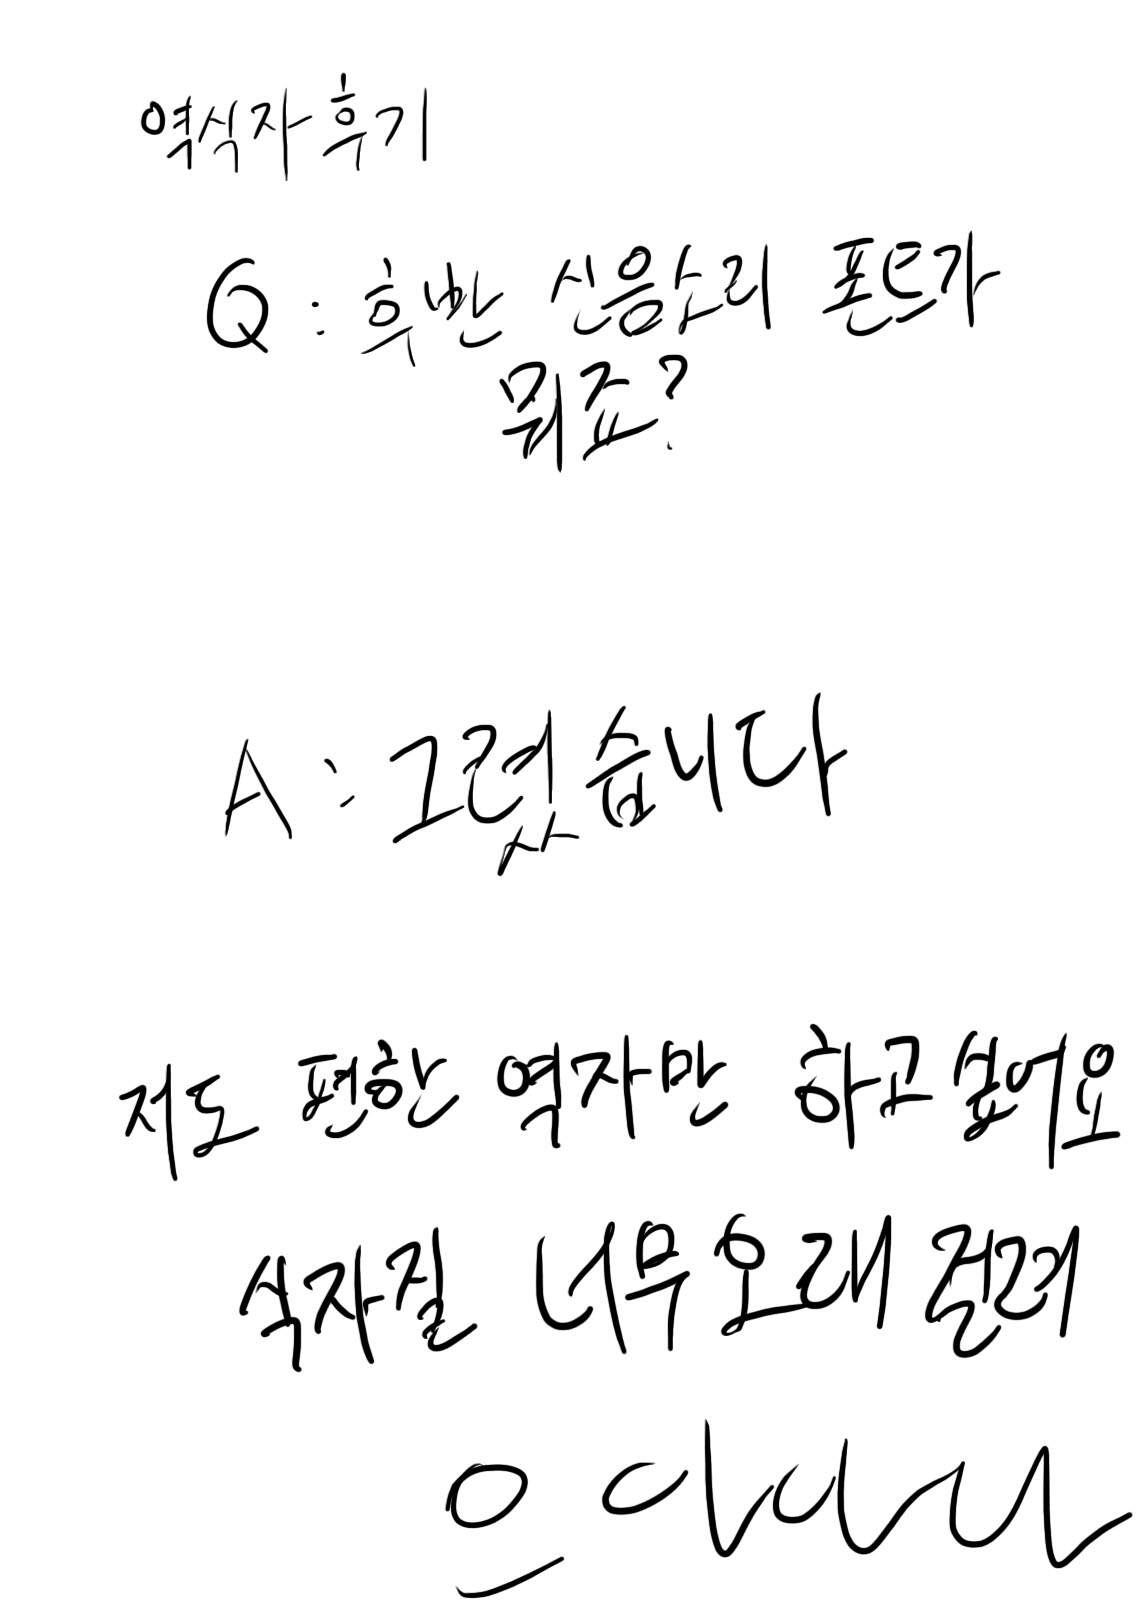 역식자후기
Q : 후반 신음소리 폰트가
뭐죠?
A : 그렸습니다
저도 편한 역자만 하고싶어요
식자질 너무오래걸려
으아아